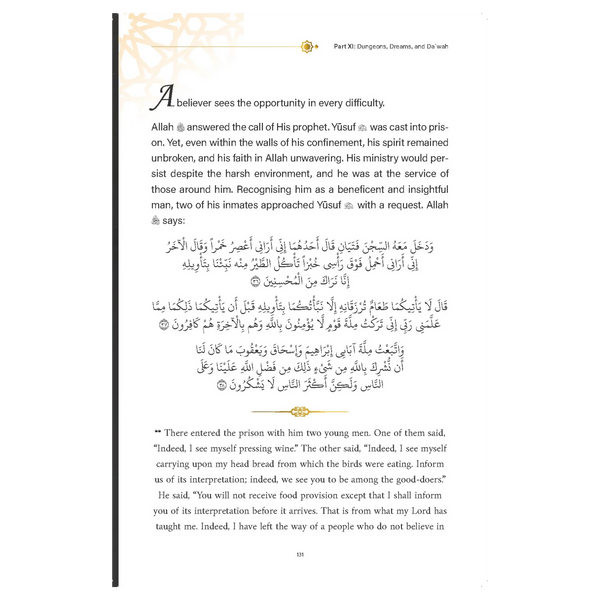 Part XI: Dungeons, Dreams, and Da`wah
A believer sees the opportunity in every difficulty.
Allah ﷻ answered the call of His prophet. Yūsuf was cast into pris-
on. Yet, even within the walls of his confinement, his spirit remained
unbroken, and his faith in Allah unwavering. His ministry would per-
sist despite the harsh environment, and he was at the service of
those around him. Recognising him as a beneficent and insightful
man, two of his inmates approached Yūsuf with a request. Allah
ﷻ says:
وَدَخَلَ مَعَهُ السِّجْنَ فَتَيَانِ قَالَ أَحَدُهُمَا إِنِّي أَرَانِي أَعْصِرُ خَمْرًا وَقَالَ الْآخَرُ
إِنِّي أَرَانِي أَحْمِلُ فَوْقَ رَأْسِي خُبْزًا تَأْكُلُ الطَّيْرُ مِنْهُ نَبِّئْنَا بِتَأْوِيلِهِ
إِنَّا نَرَاكَ مِنَ الْمُحْسِنِينَ ٣٦
قَالَ لَا يَأْتِيكُمَا طَعَامٌ تُرْزَقَانِهِ إِلَّا نَبَّأْتُكُمَا بِتَأْوِيلِهِ قَبْلَ أَن يَأْتِيَكُمَا ذَلِكُمَا مِمَّا
عَلَّمَنِي رَبِّي إِنِّي تَرَكْتُ مِلَّةَ قَوْمٍ لَّا يُؤْمِنُونَ بِاللَّهِ وَهُم بِالْآخِرَةِ هُمْ كَافِرُونَ ٣٧
وَاتَّبَعْتُ مِلَّةَ آبَائِي إِبْرَاهِيمَ وَإِسْحَاقَ وَيَعْقُوبَ مَا كَانَ لَنَا
أَن نُّشْرِكَ بِاللَّهِ مِن شَيْءٍ ذَلِكَ مِن فَضْلِ اللَّهِ عَلَيْنَا وَعَلَى
النَّاسِ وَلَكِنَّ أَكْثَرَ النَّاسِ لَا يَشْكُرُونَ ٣٨
❝ There entered the prison with him two young men. One of them said,
“Indeed, I see myself pressing wine.” The other said, “Indeed, I see myself
carrying upon my head bread from which the birds were eating. Inform
us of its interpretation; indeed, we see you to be among the good-doers.”
He said, “You will not receive food provision except that I shall inform
you of its interpretation before it arrives. That is from what my Lord has
taught me. Indeed, I have left the way of a people who do not believe in
131